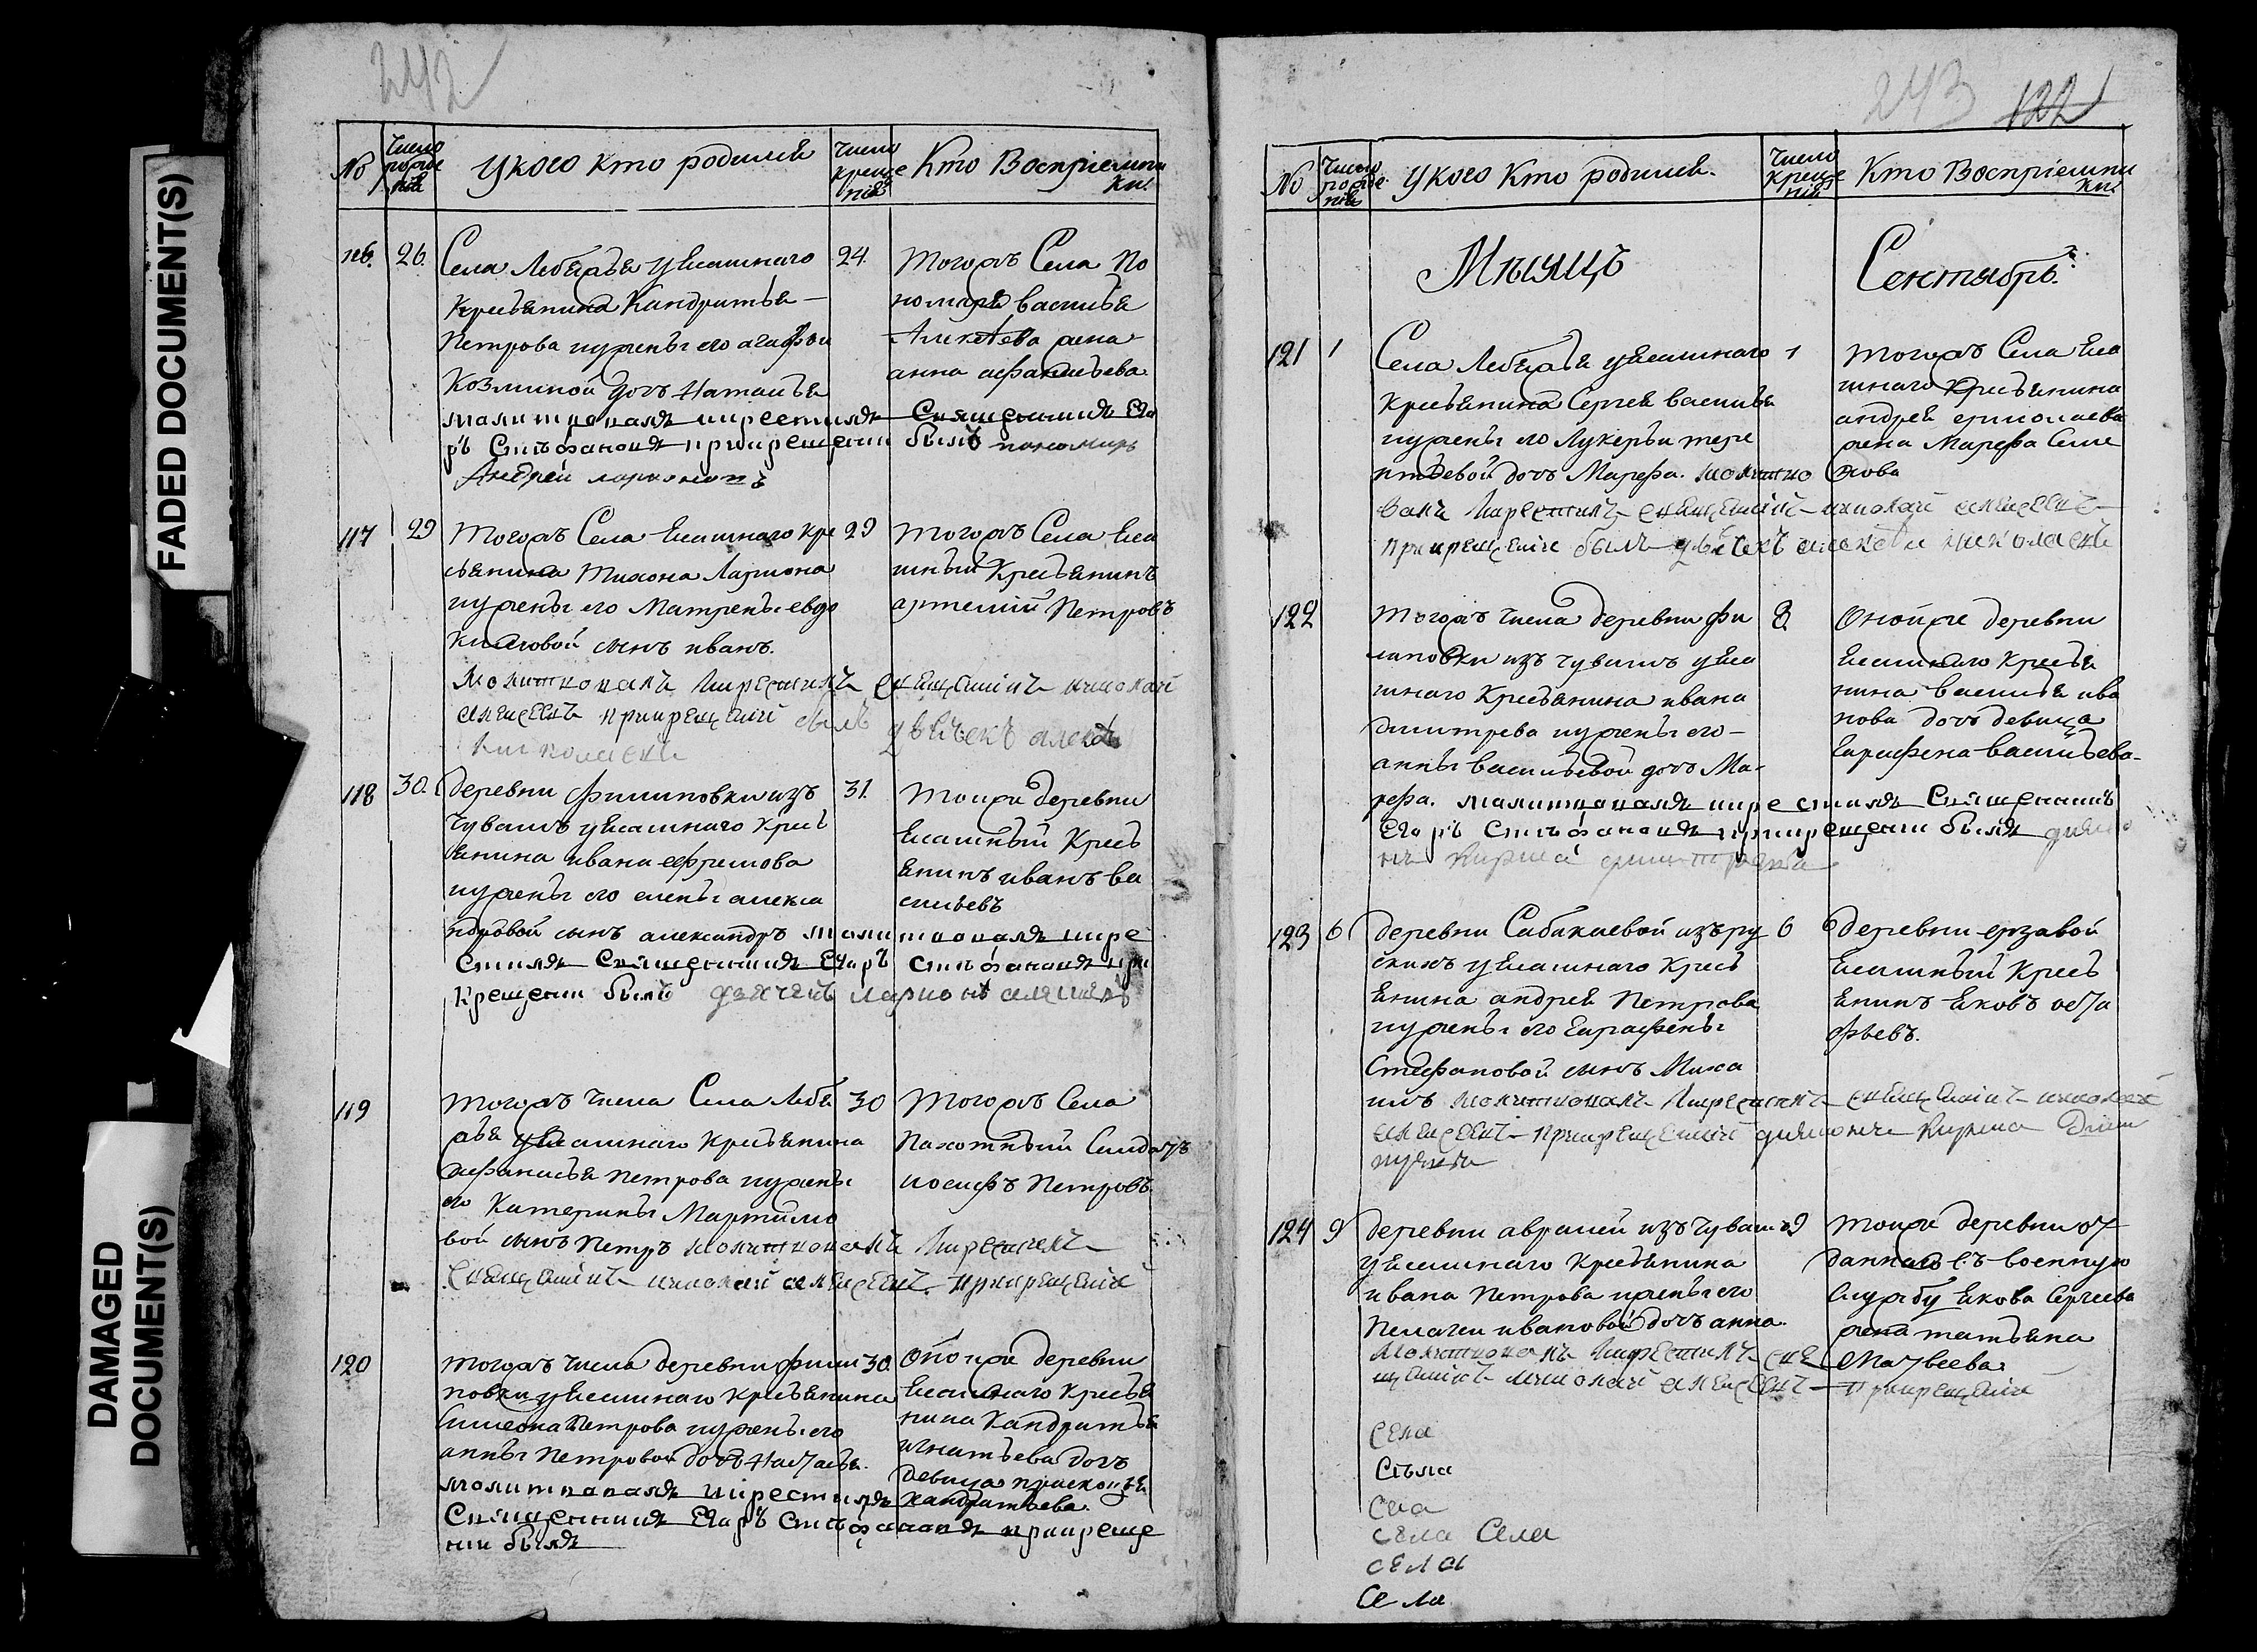 FADED DOCUMENT(S)
DAMAGED
DOCUMENT(S)
242
No
Число
рожде
нія
У кого кто родился
Число
креще
нія
Кто Воспріемни
ки.
116. 26.
Села Лебяжья у Ясашнаго
Крестьянина Кандратья
Петрова и жены его агафьи
Козминой дочь Наталья
молитвовалъ и крестилъ Священникъ Его
ръ Стефановъ при крещении былъ пономарь
Андрей
24.
тогожъ Села По
номаря василья
Алиѣева жена
анна афанасьева
117 29
тогожъ Села Ясашнаго кре
стьянина Тихона Лариона
и жены его Матрены евдо
кимовой сынъ иванъ.
Молитвовалъ и крестилъ священникъ николай
алексеевъ при крещеніи былъ дьячекъ алекѣй
николаевъ
29
тогожъ Села Яса
шный Крестьянинъ
артемий Петровъ
118 30.
деревни филиповки изъ
Чувашъ у Ясашнаго Крест
янина ивана ефремова
и жены его елены алекса
ндровой сынъ александръ моли твовалъ и кре
стилъ Священникъ Егоръ Стефановъ при
крещении былъ дьячекъ
31.
тоижа деревни
Ясашный Крест
янинъ иванъ ва
сильевъ
119
тогожъ числа Села Лебя
жья у Ясашнаго крестьянина
афанасья петрова и жены
его Катерины Мартино
вой сынъ Петръ молитвовалъ и крестилъ
священникъ николай алексеевъ при крещеніи
30
тогожъ Села
Пахотный Салдатъ
иосифъ Петровъ
120
тогожъ числа деревни фили
повки у Ясашнаго крестьянина
Симеона Петрова и жены его
анны Петровой дочь Настасья.
молитвовалъ и крестилъ
Священникъ Егоръ Стефановъ при креще
нии былъ
30.
Оной жа деревни
Ясашнаго Крестья
нина Кандратья
игнатьева дочь
девица прасковья
кандратьева.
243 122
No
Число
рожде
нія
У кого Кто родился.
Число
креще
нія
Кто Воспріемни
ки.
Мѣсяцъ Сентябрь.
121 1
Села Лебяжья у Ясашнаго
крестьянина Сергея василья
и жены его Лукерьи тере
нтьевой дочь Марфа. молитво
валъ и крестилъ священникъ николай алексеевъ
при крещеніи былъ дьячекъ алекѣй николаевъ
1
тогожъ Села Яса
шнаго Крестьянина
андрея ермолаева
жена Марфа Симе
нова
122
тогожъ числа деревни фи
липовки изъ чувашъ у Яса
шнаго Крестьянина ивана
дмитрева и жены его
анны васильевой дочь Ма
рфа. молитвовалъ и крестилъ Священникъ
Егоръ Стефановъ при крещении былъ дияко
нъ Кирила
8.
Оной же деревни
Ясашнаго Крестья
нина василья ива
нова дочь девица
Епрафена васильева
123 6
деревни Сабакаевой изъ ру
скихъ у Ясашнаго Крест
янина андрея Петрова
и жены его Епрафены
Стефановой сынъ Миха
илъ молитвовалъ и крестилъ священникъ николай
алексеевъ при крещеніи дияконъ Кирила
6
деревни ерзавой
Ясашный Крест
янинъ Яковъ
фьевъ.
124 9
деревни авралей изъ Чувашъ
у Ясашнаго Крестьянина
ивана Петрова и жены его
Пелагеи ивановой дочь анна.
Молитвовалъ и крестилъ свя
щенникъ николай алексеевъ при крещеніи
9
тоижа деревни от
даннаго въ военную
службу Якова Сергеева
жена татьяна
Матвеева
села
Сьла
Сла
села Села
села
Села